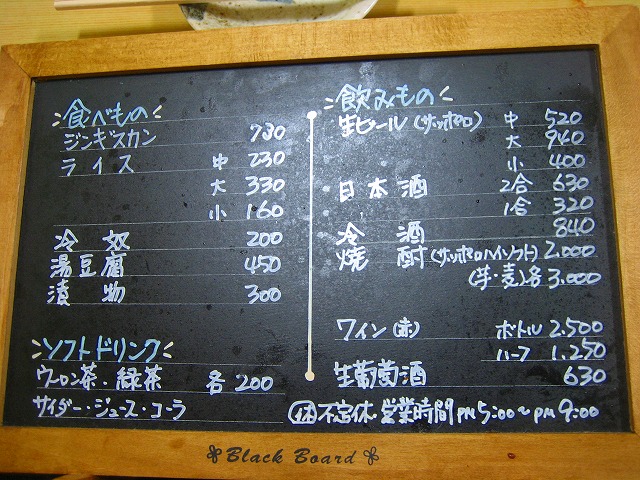 食べもの
ジンギスカン 730
ライス 中 230
大 330
小 160
冷奴 200
湯豆腐 450
漬物 300
ソフトドリンク
ウーロン茶・緑茶 各 200
サイダー・ジュース・コーラ
飲みもの
生ビール(サッポロ) 中 520
大 940
小 400
日本酒 2合 630
1合 320
冷酒 840
焼酎(サッポロハイソフト) 2.000
(芋・麦)各 3.000
ワイン(赤) ボトル 2.500
ハーフ 1.250
生葡萄酒 630
休 不定休・営業時間 PM 5:00~PM 9:00
Black Board